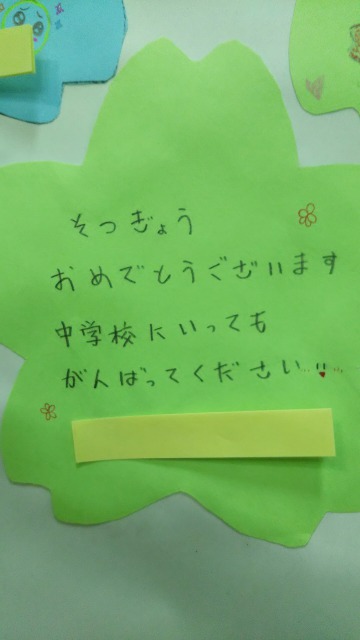 そつぎょう
おめでとうございます
中学校にいっても
がんばってください…!!